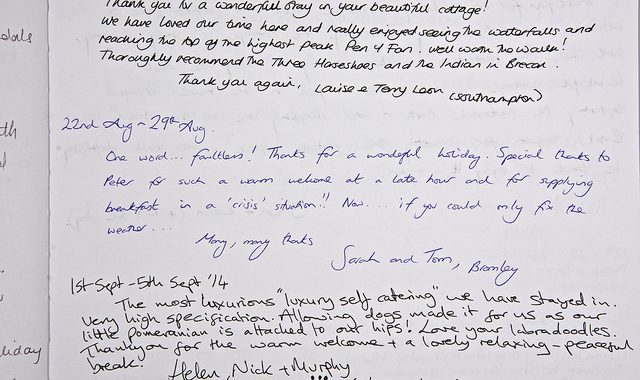 Thank you for a wonderful stay in your beautiful cottage!
We have loved our time here and really enjoyed seeing the waterfalls and
reaching the top of the highest peak Pen Y Fan. Well worth the walk!
Thoroughly recommend the Three Horseshoes and the Indian in Brecon.
Thank you again, Louise & Terry Leon (Southampton)
22nd Aug - 29th Aug.
One word... faultless! Thanks for a wonderful holiday. Special thanks to
Peter for such a warm welcome at a late hour and for supplying
breakfast in a 'crisis' situation!! Now.... if you could only fix the
weather...
Many, many thanks
Sarah and Tom, Bromley
1st Sept - 5th Sept '14
The most luxurious "luxury self catering" we have stayed in.
Very high specification. Allowing dogs made it for us as our
little pomeranian is attached to our hips! Love your labradoodles.
Thankyou for the warm welcome + a lovely relaxing - peaceful
break.
Helen, Nick + Murphy